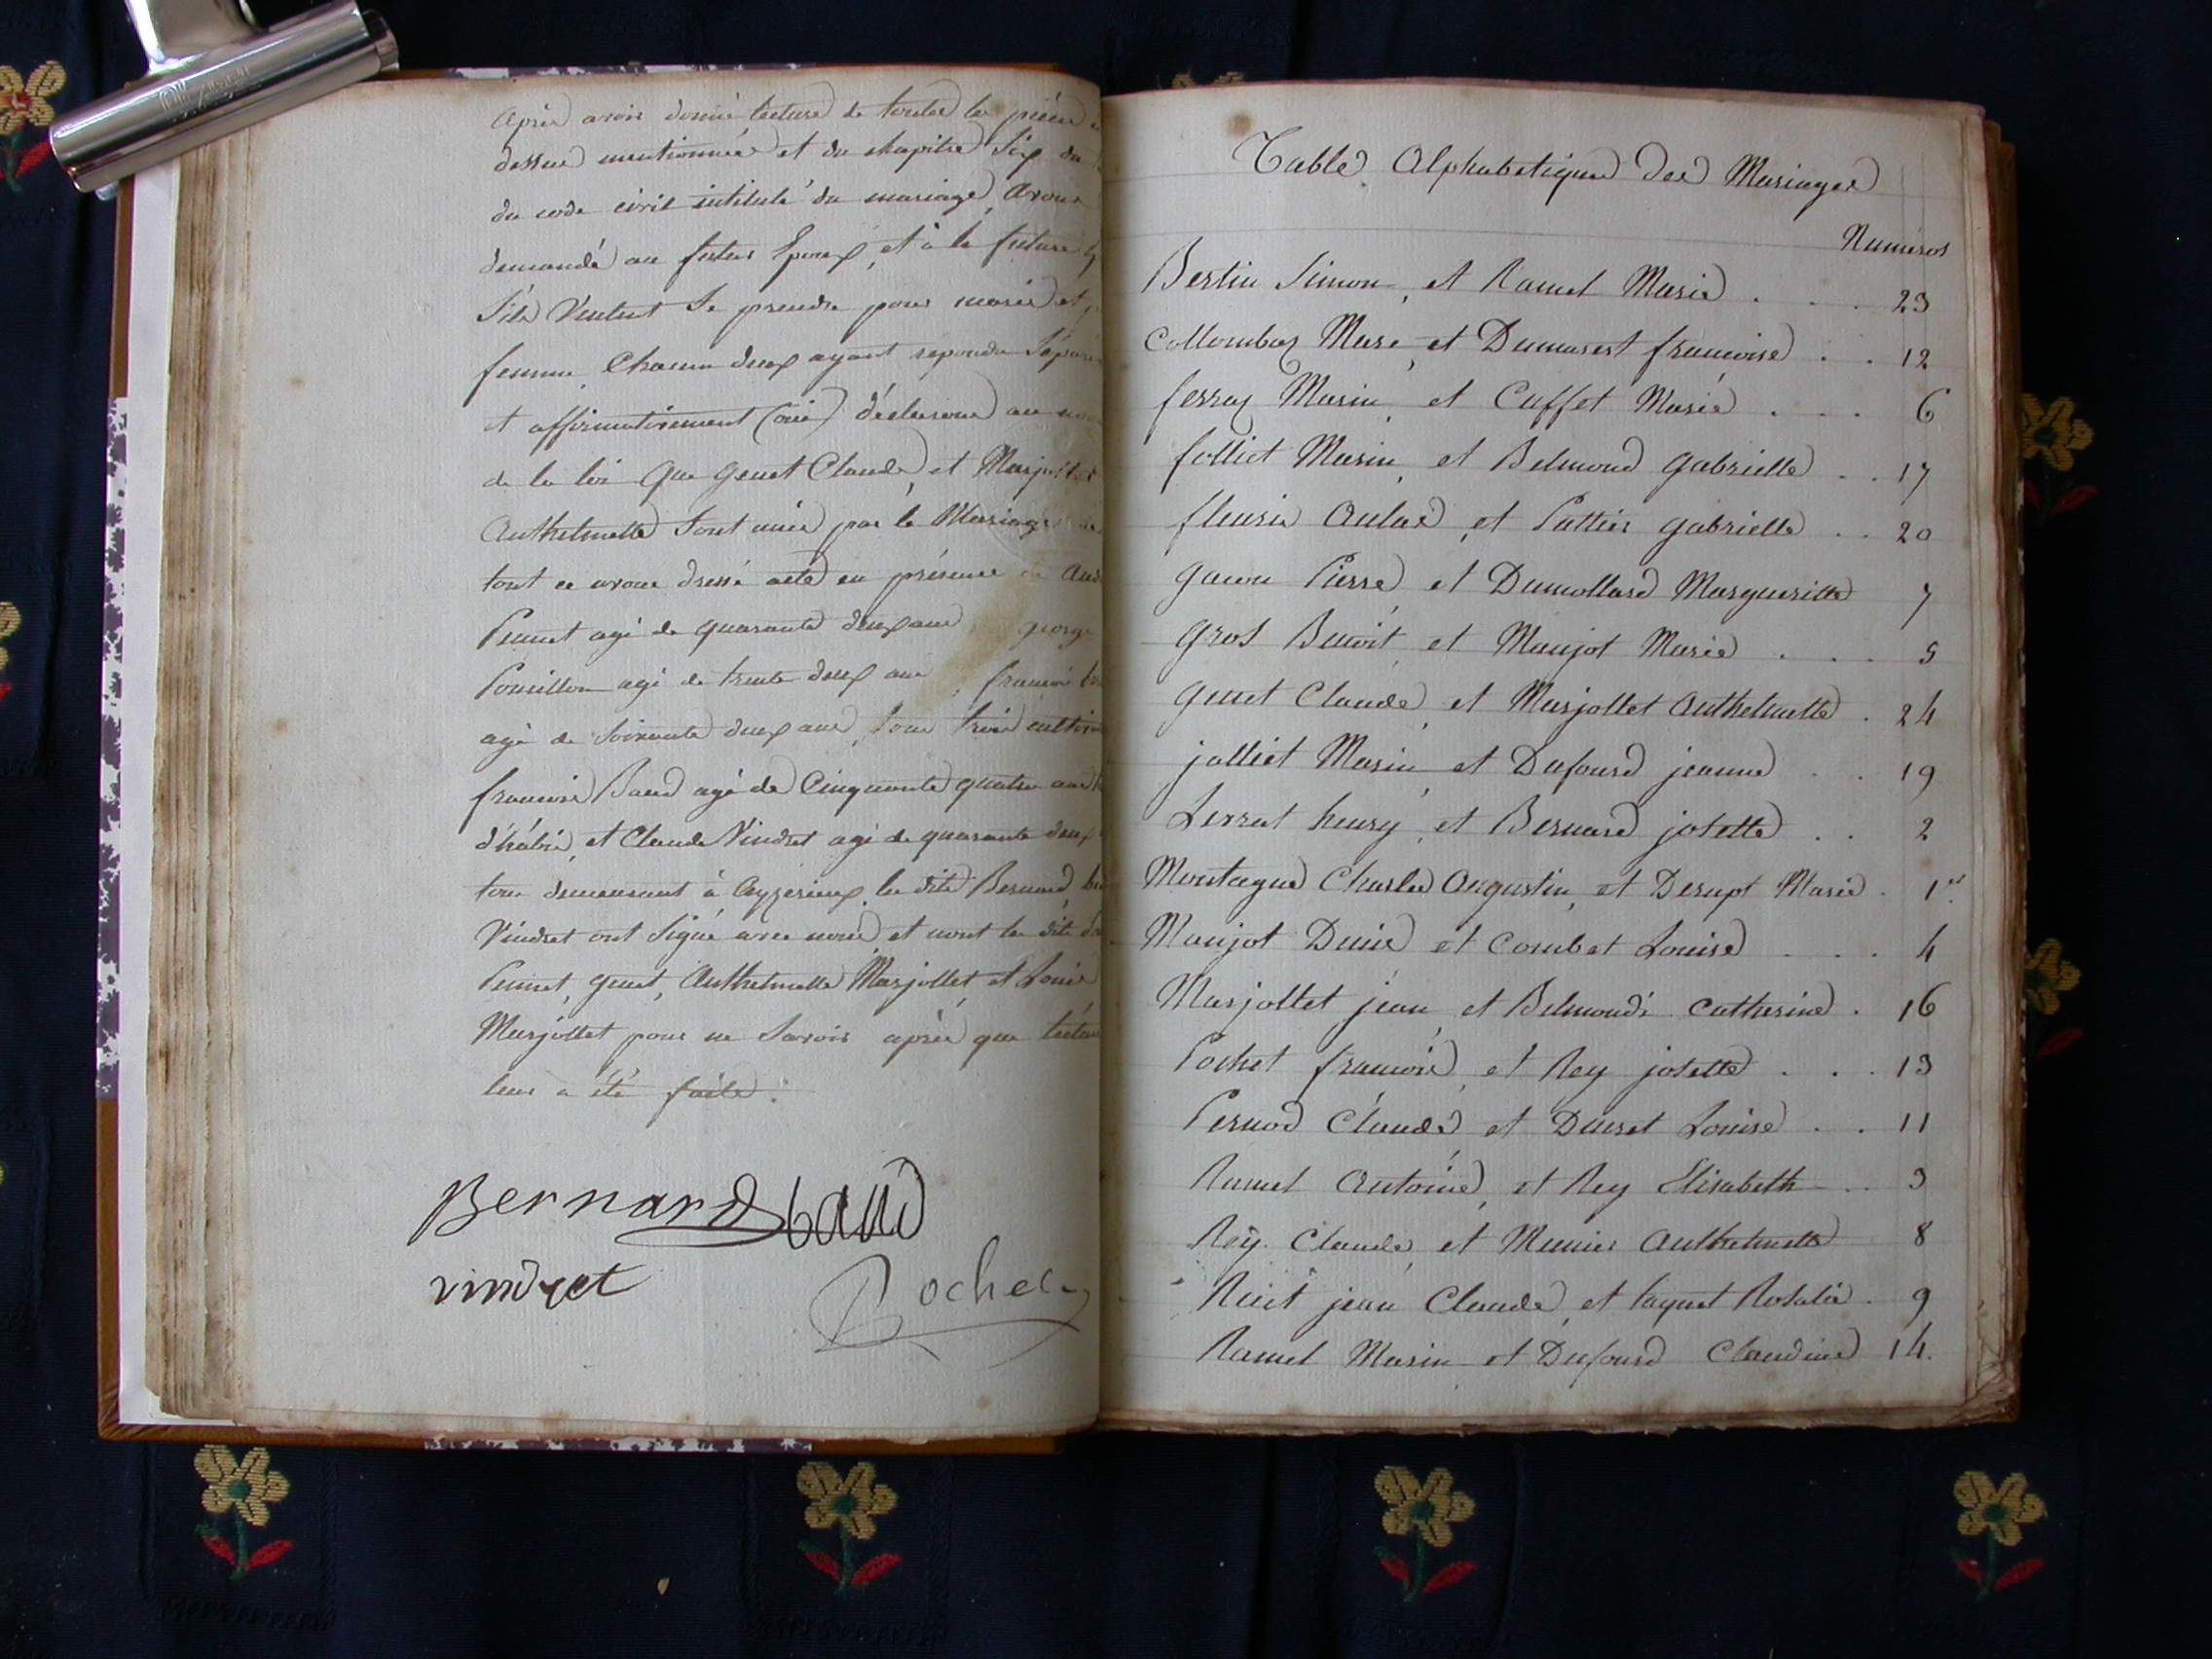 après avoir donné lecture de toutes les pièces
dessus mentionnées et du chapitre Six du
du code civil intitulé du mariage, avons
demandé au futur Epoux, et à la future
S'ils Veulent Se prendre pour maris et
femme, Chacun deux ayant repondu Sépare
et affirmativement (oui) déclarons au nom
de la loi que genet Claude, et Marjollet
Anthelmette Sont unis par le Mariage
tout ce avons dressé acte en présence
agé de quarante deux ans george
agé de trente deux ans, francois
agé de Soixante deux ans, tous trois
francois Baud agé de Cinquante quatre ans
et Claude Vindret agé de quarante deux
tous demeurant à Ceyzerieux, les dits Bernard,
Vindret ont Signé avec nous et nont les dits
genet, Anthelmette Marjollet et Louis
Marjollet pour ne Savoir après que lecture
leur a été faite.
Bernard baud
vindret
Rochet
Table Alphabetique des Mariages
Numéros
Bertin Simon, et Ramel Marie . . . 23
Collombaz Marc, et Dumarest francoise . . 12
ferraz Marin, et Caffet Marie . . . 6
folliet Marin, et Belmond gabrielle . . 17
fleurie et Pattier gabrielle . . 20
Pierre, et Dumollard Margueritte 7
gros Benoit, et Manjot Marie . . . 5
genet Claude, et Marjollet Anthelmette . 24
jolliet Marin, et Dufourd jeanne . . 19
Lerrat henry, et Bernard josette . . 2
Montagne Charles Augustin, et Derupt Marie . 1er
Manjot Denis et Combet Louise . . . 4
Marjollet jean, et Belmond Catherine . 16
Pochet francois, et Rey josette . . . 13
Pernod Claude, et Ducret Louise . . 11
Ramel Antoine, et Rey Elisabeth . . 3
Rey Claude, et Munier Anthelmette 8
jean Claude, et Rosalie . 9
Ramel Marin et Dufourd Claudine 14.